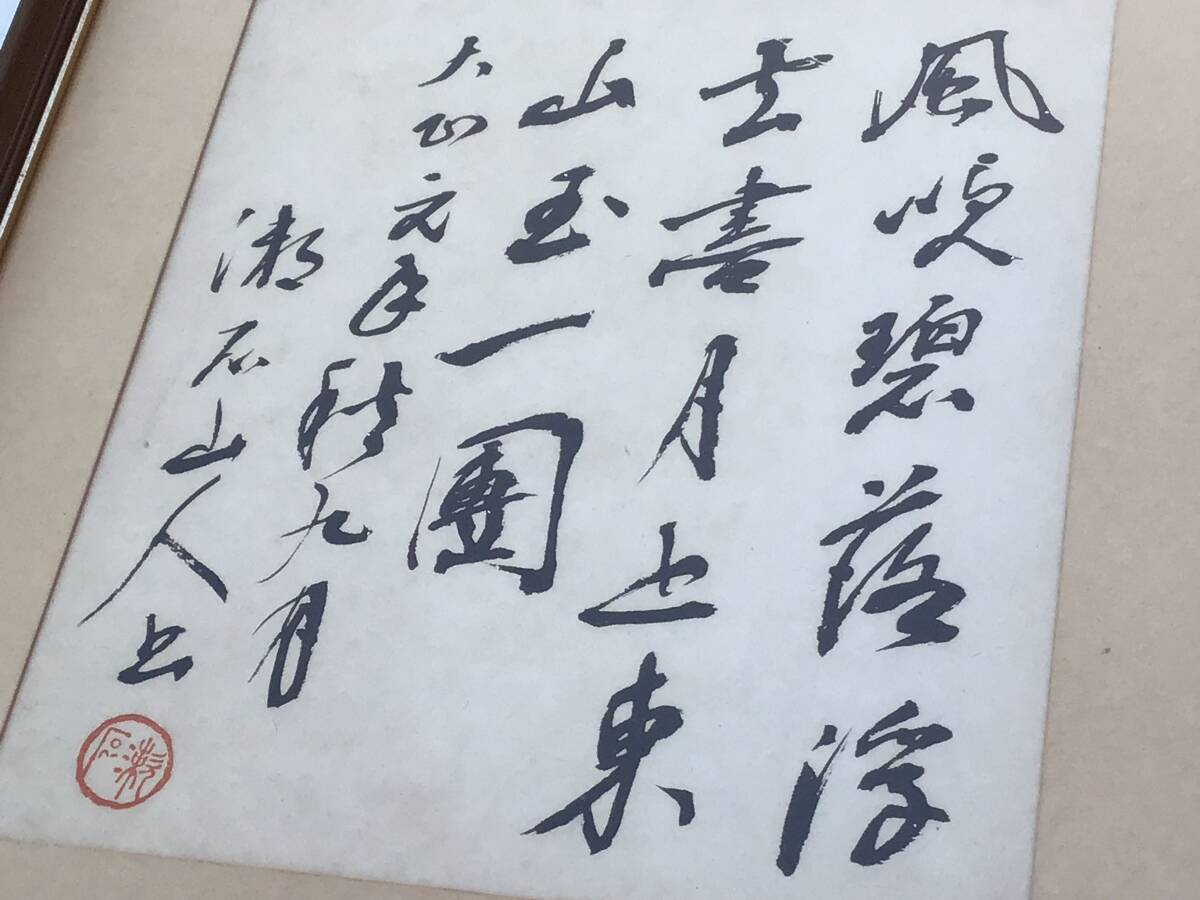 風吹碧落浮
云盡月上東
山玉一團
大正元年秋九月
漱石山人書
漱石